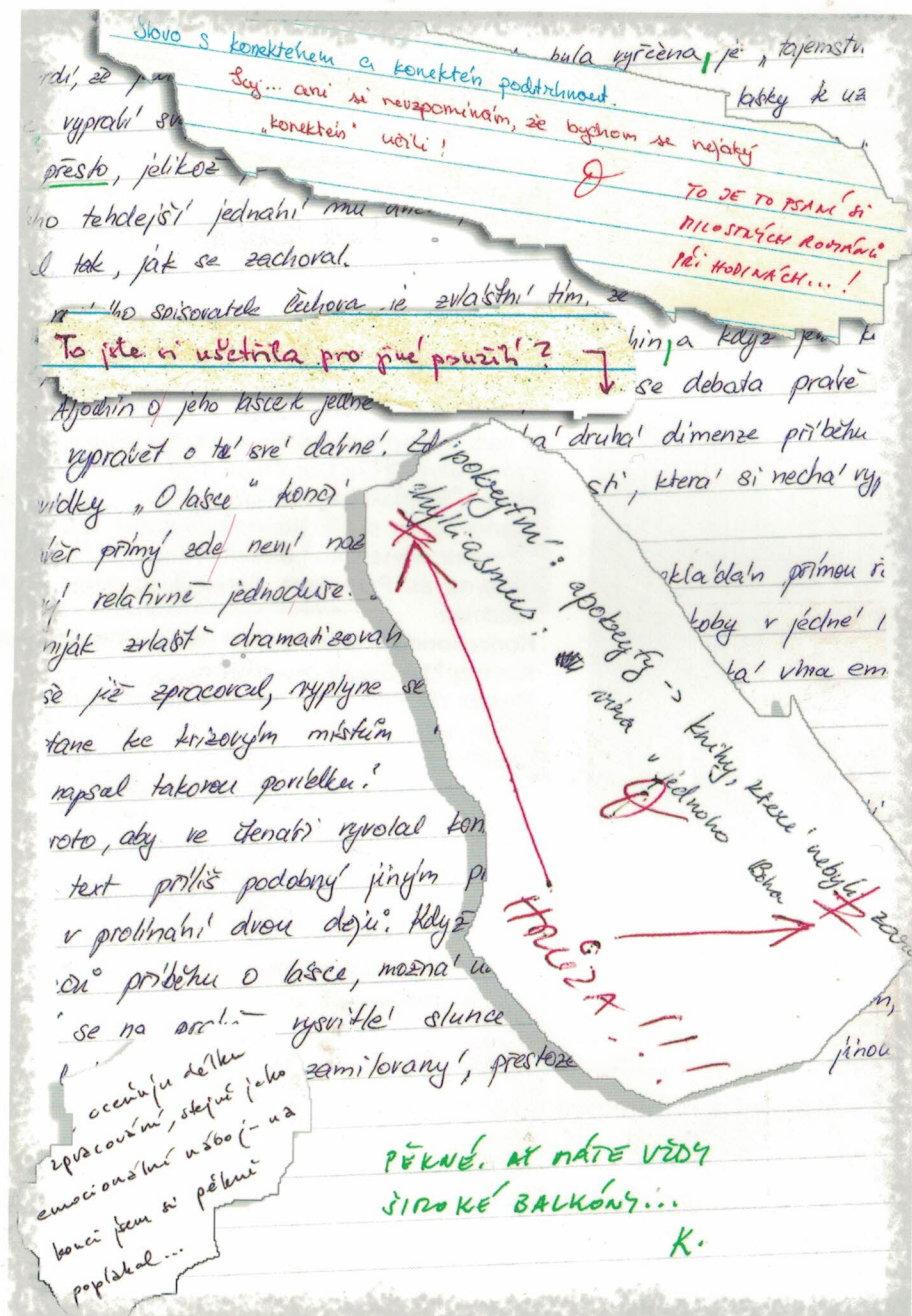 Slovo s konektéhem a konektén podtrhnout.
Saj... ani si nevzpomínám, že bychom se nějaký
"konektén" učili!
TO JE TO PSANÍ SI
MILOSTNÝCH ROMÁNŮ
PŘI HODINÁCH...!
byla vyřčena, je „tajemstv
rdí, že
lásky k už
vypráví
přesto, jelikož
ho tehdejší jednání mu
tak, jak se zachoval.
ho spisovatele Čechova je zvláštní tím, že
To jste si ušetřila pro jiné použití?
hin, a když jen
Aljochin o jeho lásce k jedné
se debata pravě
vyprávět o té své dávné.
há druhá dimenze příběhu
vídky „O lásce" končí
sti, která si nechá vyp
ěr přímý zde není naz
ý relativně jednoduše.
kládán přímou ř
niják zvlášť dramatizován
koby v jedné
se již zpracoval, vyplyne se
ká vina em
tane ke krizovým místům
napsal takovou povídku?
roto, aby ve čtenáři vyvolal kon
text příliš podobný jiným
v prolínání dvou dějů. Když
příběhu o lásce, možná
se na vysvitlé slunce
zamilovaný, přestože
jinou
ipokryfní: apokryfy -> knihy, které nebyly zar
chiliasmus: víra v jednoho Boha
HRŮZA!!!
oceňuju délku
zpracování, stejně jako
emocionální náboj - na
konci jsem si pěkně
poplakal...
PĚKNÉ. AŤ MÁTE VŽDY
ŠIROKÉ BALKÓNY...
K.